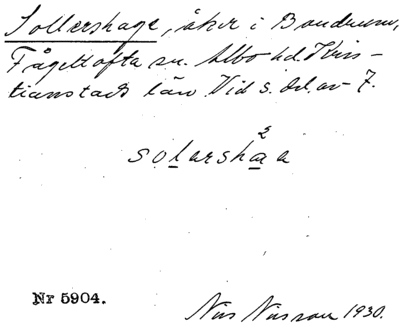 Sollershage, åker i Bondrum,
Fågeltofta sn. Albo hd. Kris-
tianstads län. Vid s. del. av 7.
solarsha²a
Nr 5904.
Nils Nilsson 1930.